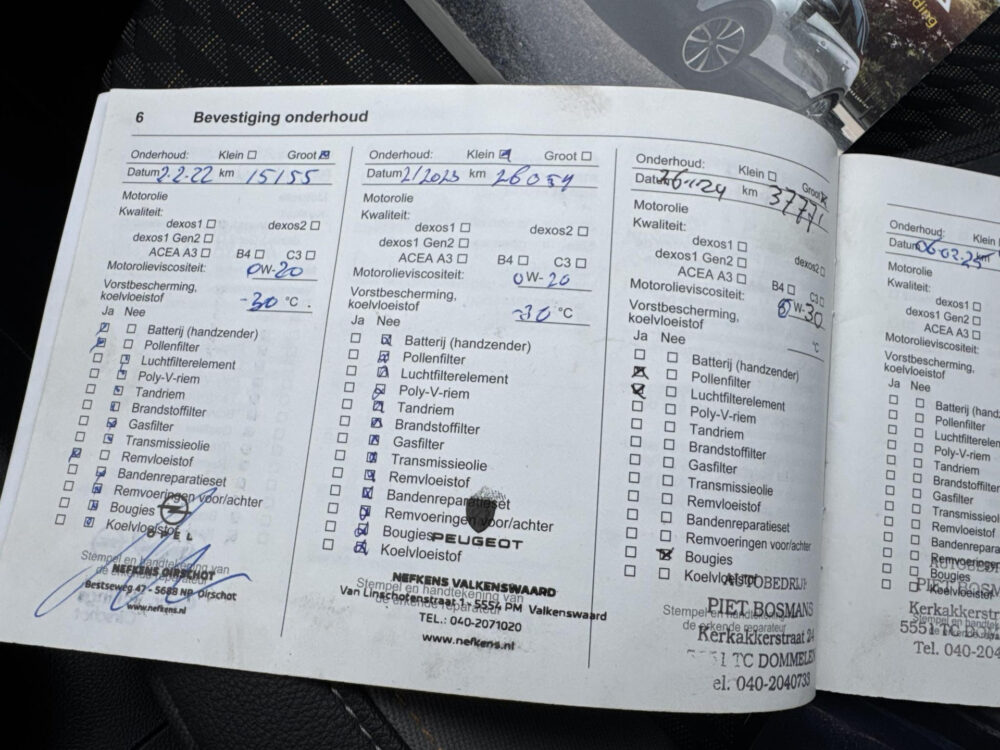 ding
6 Bevestiging onderhoud
Onderhoud: Klein Groot
Datum 2.2.22 km 15155
Motorolie
Kwaliteit:
dexos1 dexos2
dexos1 Gen2
ACEA A3 B4 C3
Motorolieviscositeit: 0W-20
Vorstbescherming,
koelvloeistof -30 °C
Ja Nee
Batterij (handzender)
Pollenfilter
Luchtfilterelement
Poly-V-riem
Tandriem
Brandstoffilter
Gasfilter
Transmissieolie
Remvloeistof
Bandenreparatieset
Remvoeringen voor/achter
Bougies
Koelvloeistof
OPEL
Stempel en handtekening van
de erkende reparateur
NEFKENS OIRSCHOT
Bestseweg 47 - 5688 NP Oirschot
www.nefkens.nl
Onderhoud: Klein Groot
Datum 2/2023 km 26059
Motorolie
Kwaliteit:
dexos1 dexos2
dexos1 Gen2
ACEA A3 B4 C3
Motorolieviscositeit: 0W-20
Vorstbescherming,
koelvloeistof -30 °C
Ja Nee
Batterij (handzender)
Pollenfilter
Luchtfilterelement
Poly-V-riem
Tandriem
Brandstoffilter
Gasfilter
Transmissieolie
Remvloeistof
Bandenreparatieset
Remvoeringen voor/achter
Bougies
Koelvloeistof
PEUGEOT
Stempel en handtekening van
de erkende reparateur
NEFKENS VALKENSWAARD
Van Linschotenstraat 1 - 5554 PM Valkenswaard
TEL.: 040-2071020
www.nefkens.nl
Onderhoud: Klein Groot
Datum km 37771
Motorolie
Kwaliteit:
dexos1 dexos2
dexos1 Gen2
ACEA A3 B4 C3
Motorolieviscositeit: 0W-30
Vorstbescherming,
koelvloeistof °C
Ja Nee
Batterij (handzender)
Pollenfilter
Luchtfilterelement
Poly-V-riem
Tandriem
Brandstoffilter
Gasfilter
Transmissieolie
Remvloeistof
Bandenreparatieset
Remvoeringen voor/achter
Bougies
Koelvloeistof
AUTOBEDRIJF
Stempel en handtekening
de erkende reparateur
PIET BOSMANS
Kerkakkerstraat 24
5551 TC DOMMELEN
el. 040-2040733
Onderhoud: Klein
Datum 06-02-25 km
Motorolie
Kwaliteit:
dexos1
dexos1 Gen2
ACEA A3
Motorolieviscositeit:
Vorstbescherming,
koelvloeistof
Ja Nee
Batterij (hand
Pollenfilter
Luchtfilterelem
Poly-V-riem
Tandriem
Brandstoffilter
Gasfilter
Transmissieol
Remvloeistof
Bandenrepara
Remvoeringen
Bougies
Koelvloeistof
Kerkakkerstr
5551 TC D
Tel. 040-204